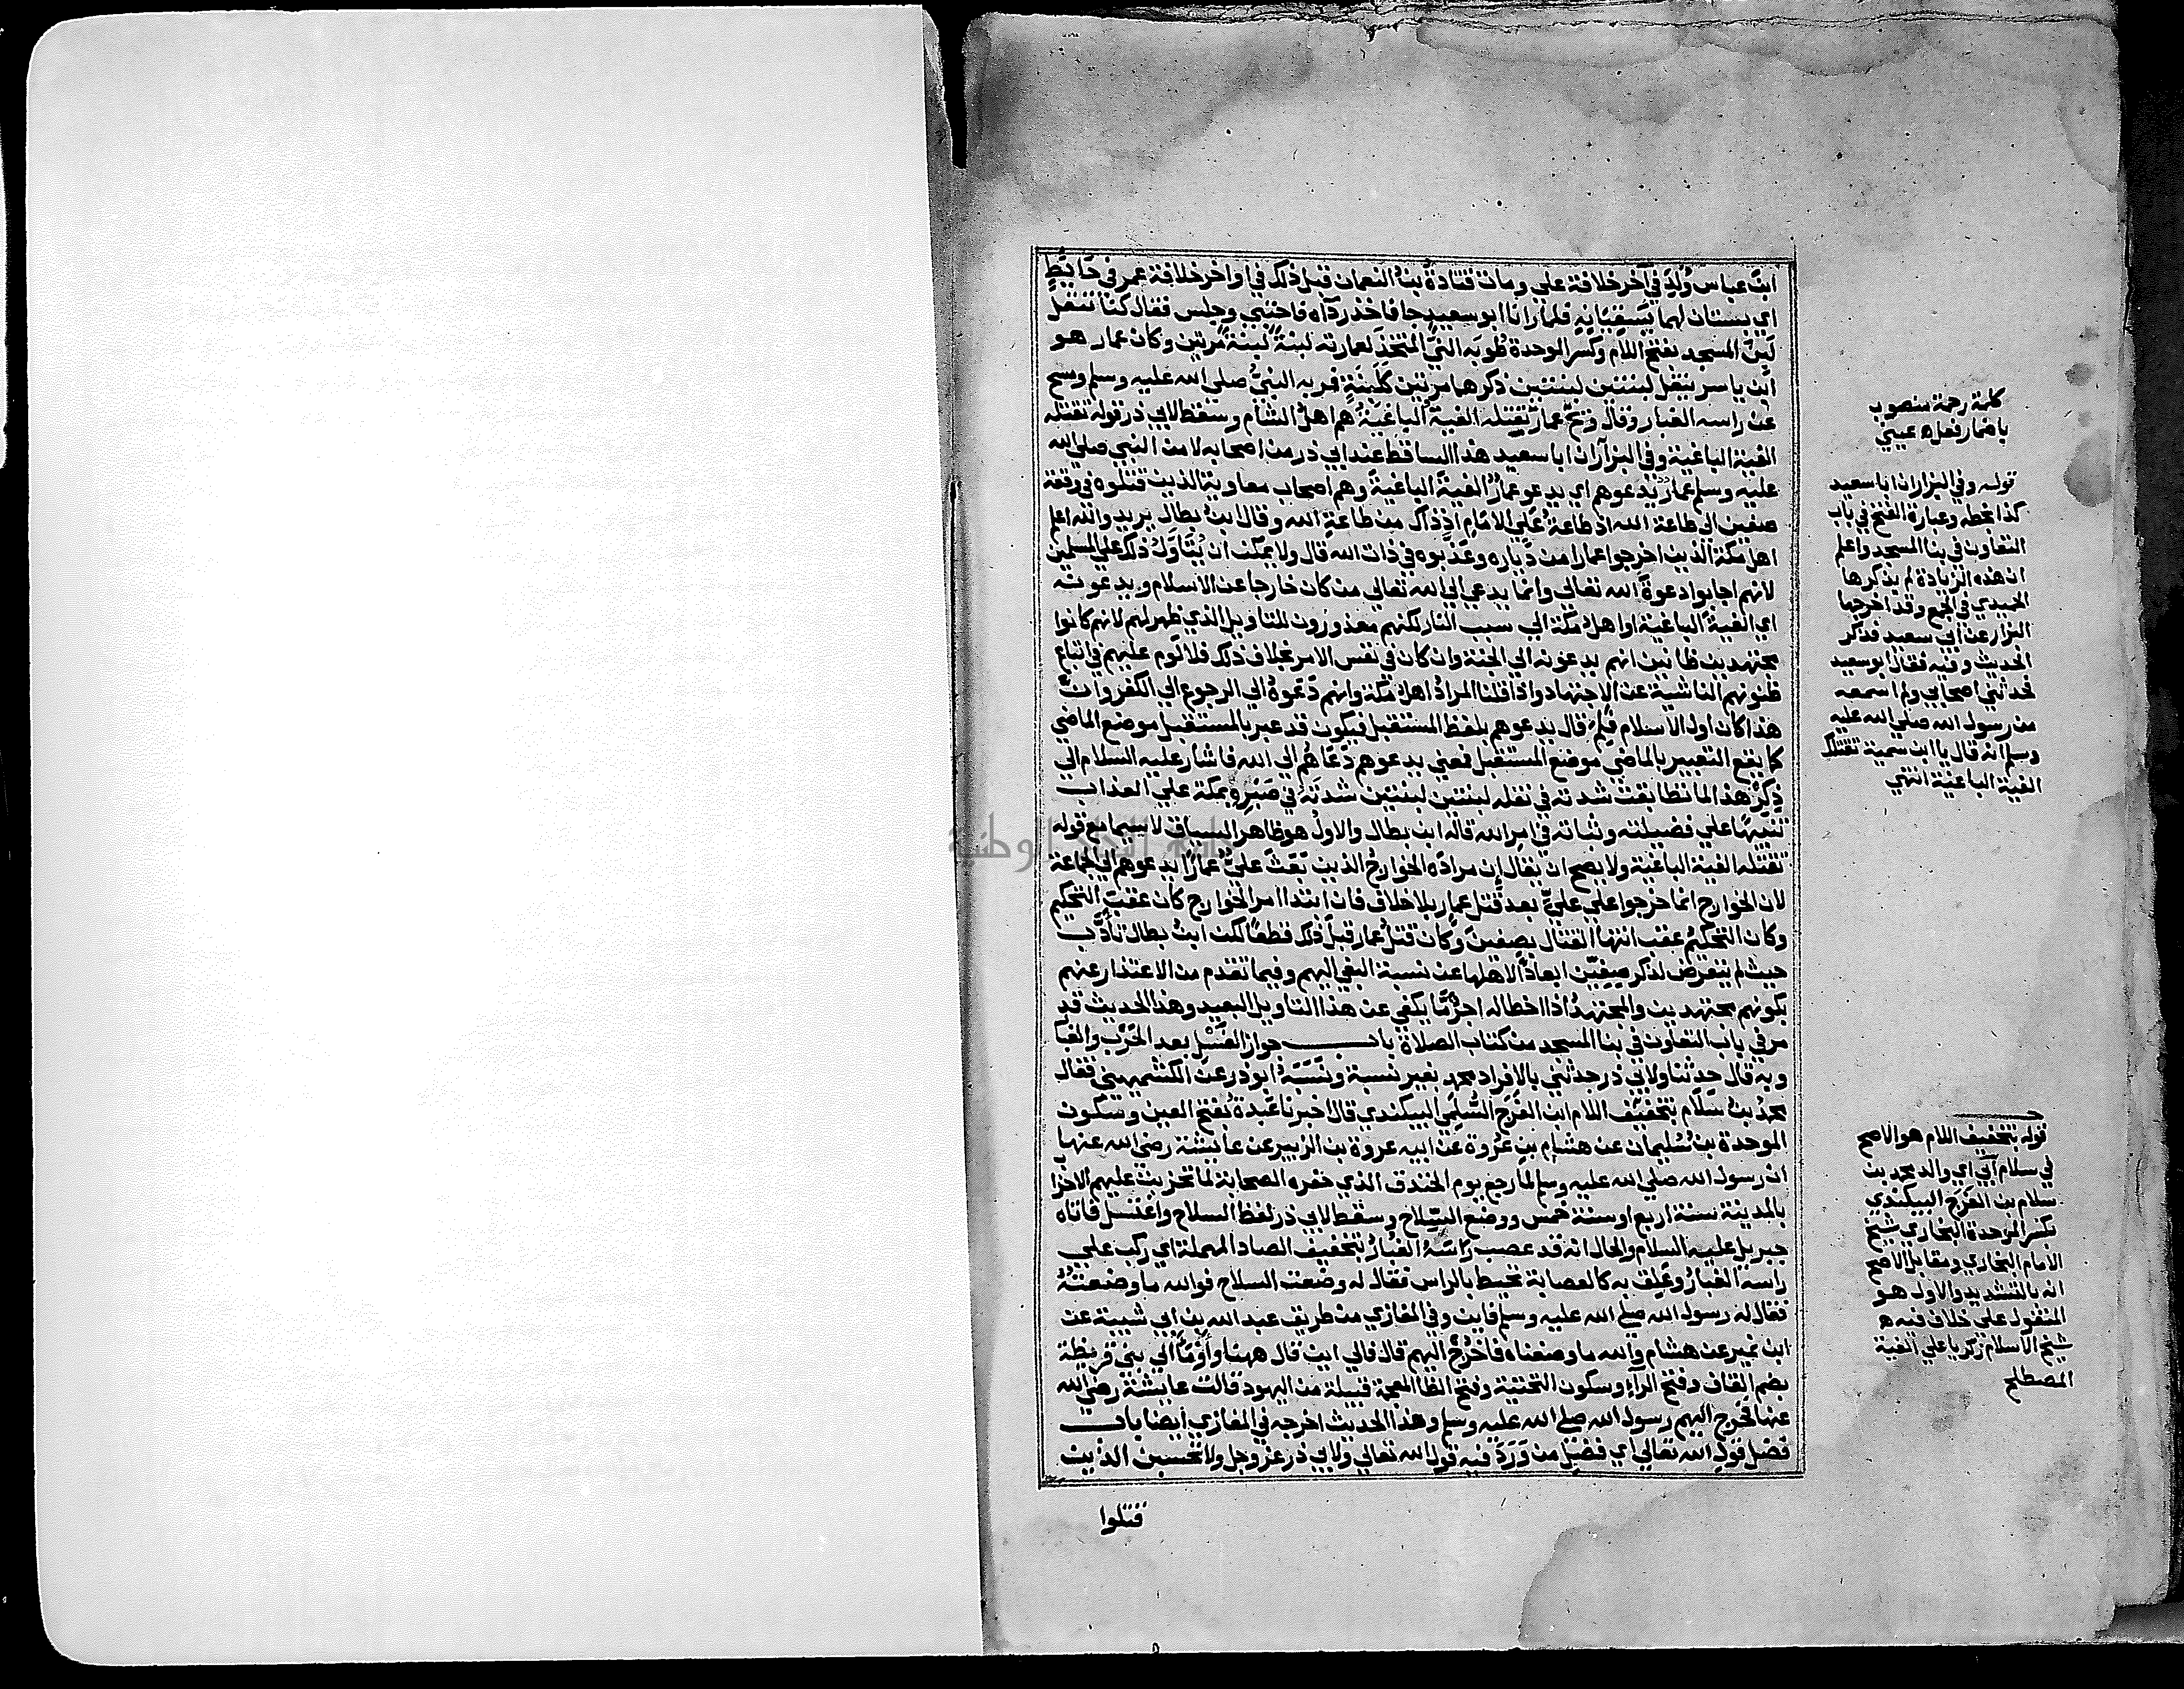 ابن عباس وُلِدَ في آخر خلافة علي ومات قتادة بن النعمان قبل ذلك في اواخر خلافة عمر في حَايطٍ
اي بستان لهما يَسقيَانِهِ فلما رانا ابو سعيد جا فاخذ ردآه فاحتبي وجلس فقال كنا ننقل
لَبِنَ المسجد بفتح اللام وكسر الموحدة طوبَه النيَّ المتخذ لعمارته لبنةً لبنةً مرتين وكان عمار هو
ابن ياسر ينقل لبنتين لبنتين ذكرها مرتين كلَبِنَةٍ فمر به النبيُّ صلي الله عليه وسلم ومسح
عن راسه الغبار وقال وَيحَ عمار تقتله الفيةُ الباغيةُ هم اهلُ الشام وسقط لابي ذر قوله تقتله
الفية الباغية وفي البزار ان ابا سعيد هذا الساقط عند ابي ذر من اصحابه لا من النبي صلي الله
عليه وسلم عمارٌ يَدعوهم اي يدعو عمارٌ الفيةَ الباغيةَ وهم اصحاب معاوية الذين قتلوه في وقعة
صفين الي طاعة الله اذ طاعةُ عليٍ الامامِ اذ ذاك من طاعةِ الله وقال ابن بطال يريد والله اعلم
اهل مكة الذين اخرجوا عمارا من دياره وعذبوه في ذات الله قال ولا يمكن ان يُتَاَوَّل ذلك علي المسلمين
لانهم اجابوا دعوةَ الله تعالي وانما يدعي الي الله تعالي من كان خارجا عن الاسلام ويدعونه
اي الفيةُ الباغيةُ او اهلُ مكة الي سبب النار لكنهم معذورون للتاويل الذي ظهر لهم لانهم كانوا
مجتهدين ظانين انهم يدعونه الي الجنة وان كان في نفس الامر بخلاف ذلك فلا لوم عليهم في اتباع
ظنونهم الناشية عن الاجتهاد واذا قلنا المرادُ اهلُ مكة وانهم دَعَوهُ الي الرجوع الي الكفر وانَّ
هذا كان اول الاسلام فَلِمَ قال يدعوهم بلفظ المستقبل فيكون قد عبر بالمستقبل موضع الماضي
كما يقع التعبير بالماضي موضع المستقبل فمعني يدعوهم دَعَاهُم الي الله فاشار عليه السلام الي
ذِكرِ هذا لما تطابقت شدته في نقله لبنتين لبنتين شدتَه في صَبرِهِ بمكة علي العذاب
تنبيهًا علي فضيلته وثباته في امر الله قاله ابن بطال والاولُ هو ظاهر السياق لا سيما مع قوله
تقتله الفية الباغية ولا يصح ان يقال إن مرادَه الخوارجُ الذين بَعَثَ عليٌّ عمارًا يدعوهم الي الجماعة
لان الخوارج انما خرجوا علي عليٍّ بعد قَتل عمار بلا خلاف فان ابتدا امر الخوارج كان عقبَ التحكيم
وكان التحكيمُ عقب انتها القتال بصفينَ وكان قتلُ عمار قبل ذلك قطعًا لكن ابن بطال تأدَّب
حيث لم يتعرض لذكر صِفِين ابعادًا لاهلها عن نسبة البغي اليهم وفيما تقدم من الاعتذار عنهم
بكونهم مجتهدين والمجتهدُ اذا اخطا له اجرٌ ما يكفي عن هذا التاويل البعيد وهذا الحديث قد
مر في باب التعاون في بنا المسجد من كتاب الصلاة باب جواز الغَسلِ بعد الحَرب والغبا
وبه قال حدثنا ولابي ذر حدثني بالافراد محمد بغير نسبة ونَسَبَهُ ابو ذر عن الكشميهني فقال
محمدُ بنُ سلَام بتخفيف اللام ابن الفرَج السُّلَمِي البيكندي قال اخبرنا عَبدةُ بفتح العين وسكون
الموحدة بن سُليمان عن هشام بنِ عُروة عن ابيه عروة بن الزبير عن عايشة رضي الله عنها
ان رسول الله صلي الله عليه وسلم لما رجع يوم الخندق الذي حفره الصحابة لما تحزبت عليهم الاحزا
بالمدينة سنة اربع او سنة خمس ووضع السِّلاحَ وسقط لابي ذر لفظ السلاح واغتسل فاتاه
جبريل عليه السلام والحال انه قد عصب رَاسَهُ الغبارُ بتخفيف الصاد المهملة اي ركب علي
راسه الغبار وعَلِقَ به كالعصابة تحيط بالراس فقال له وضعت السلاح فوالله ما وضعتُهُ
فقال له رسول الله صلي الله عليه وسلم فاين وفي المغازي من طريق عبد الله بن ابي شيبة عن
ابن نمير عن هشام والله ما وضعناه فاخرُج اليهم قال فالي اين قال ههنا وأومَأَ الي بني قريظة
بضم القاف وفتح الراء وسكون التحتية وفتح الظا المعجمة قبيلة من اليهود قالت عايشة رضي الله
عنها فخرج اليهم رسول الله صلي الله عليه وسلم وهذا الحديث اخرجه في المغازي ايضا باب
فضل قول الله تعالي اي فضل من وَرَدَ فيه قول الله تعالي ولابي ذر عز وجل ولا تحسبن الذين
قتلوا
كلمة رحمة منصوب
باضمار فعل اه عيني
قوله وفي البزار ان ابا سعيد
كذا بخطه وعبارة الفتح في باب
التعاون في بنا المسجد واعلم
ان هذه الزيادة لم يذكرها
الحميدي في الجمع وقد اخرجها
البزار عن ابي سعيد فذكر
الحديث وفيه فقال ابو سعيد
فحدثني اصحابي ولم اسمعه
من رسول الله صلي الله عليه
وسلم انه قال يا ابن سمية تقتلك
الفية الباغية انتهي
قوله بتخفيف اللام هو الاصح
في سلام ابي اي والد محمد بن
سلام بن الفرج البيكندي
بكسر الموحدة البخاري شيخ
الامام البخاري ومقابل الاصح
انه بالتشديد والاول هو
المنقول علي خلاف فيه ه
شيخ الاسلام زكريا علي الفية
المصطلح